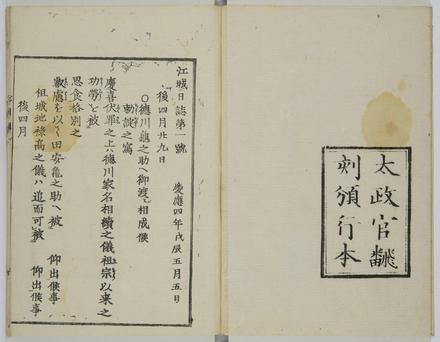 太政官飜
刻頒行本
江城日誌第一號
慶應四年戊辰五月五日
後四月廿九日
〇德川龜之助ヘ御渡ニ相成候
勅諚之寫
慶喜伏罪之上ハ德川家名相續之儀祖宗以来之
功勞ヲ被
思食格別之
叡慮ヲ以テ田安龜之助ヘ被 仰出候事
但城地禄高之儀ハ追而可被 仰出候事
後四月